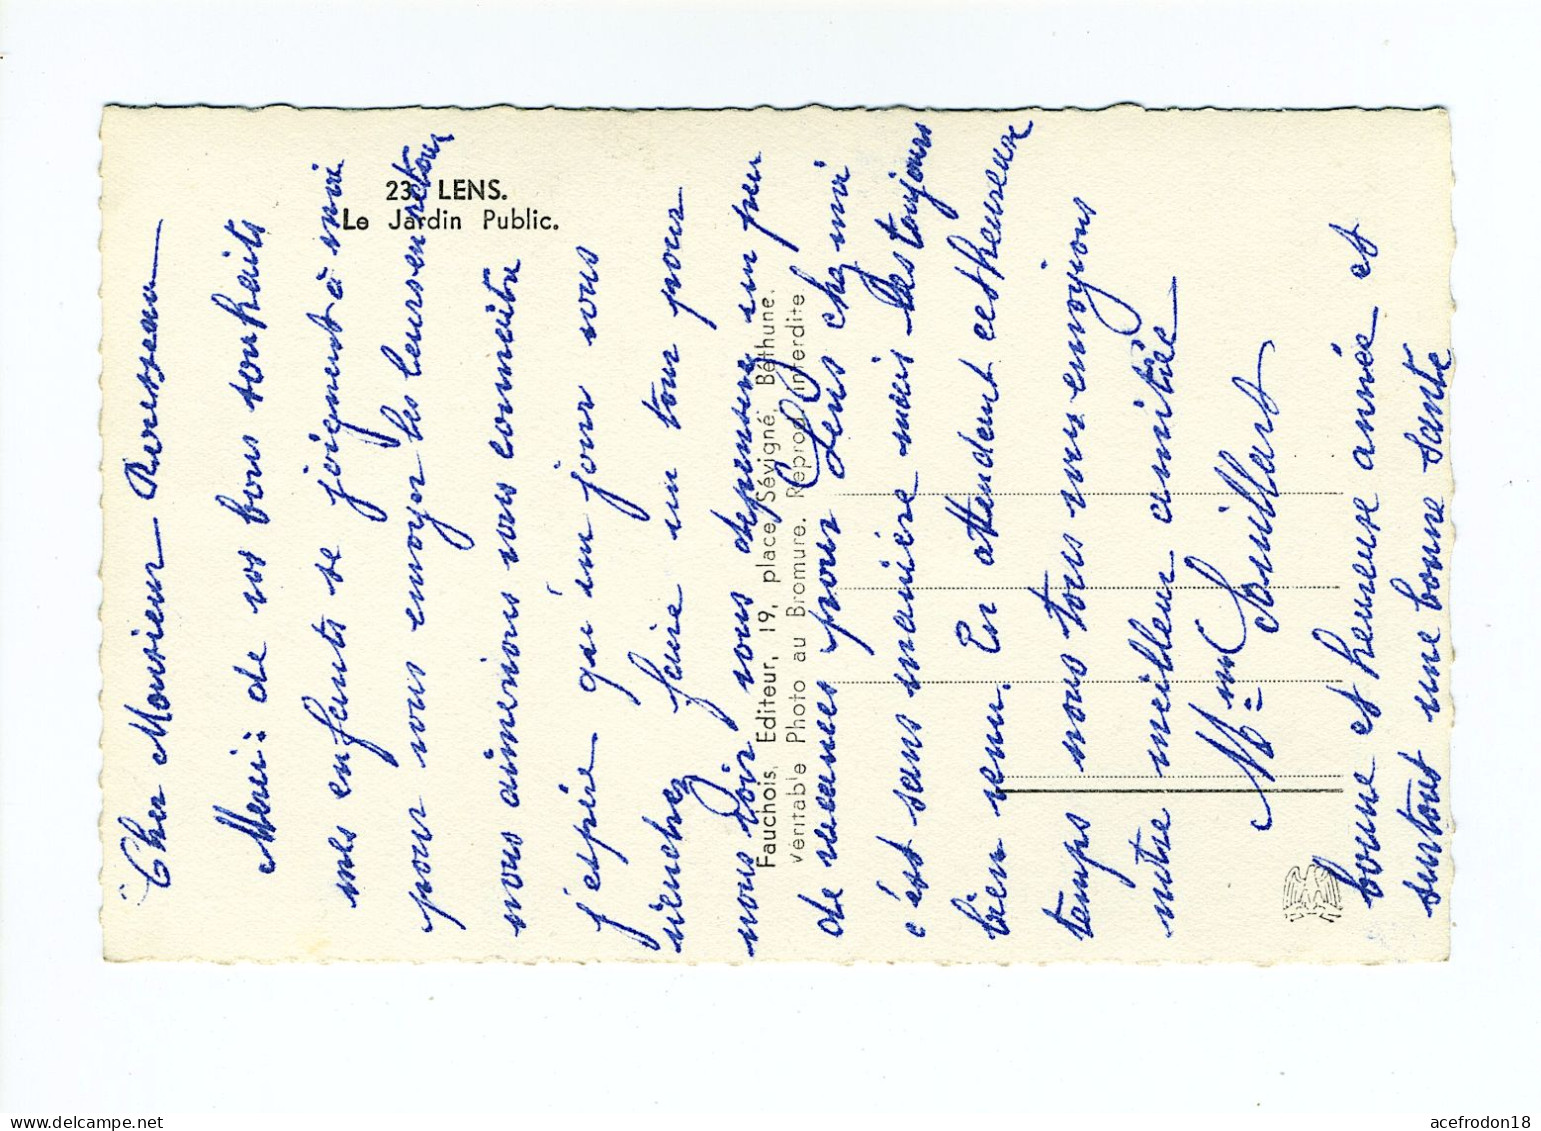 23. LENS.
Le Jardin Public.
Fauchois, Editeur, 19, place Sévigné, Béthune.
Véritable Photo au Bromure. Reprod. interdite
Cher Monsieur Rousseau
Merci de vos bons souhaits
mes enfants se joignent à moi
pour vous envoyer les leurs en retour
nous aimerions vous connaitre
j'espère qu'un jour vous
viendrez faire un tour pour
nous voir vous depensere un peu
de vacances pour Lens chez moi
c'est sans manière mais les toujours
bien venu. En attendent cest heureux
temps nous tous vous envoyions
notre meilleur amitiée
Mme Souillart
bonne et heureuse année et
surtout une bonne santé
acefrodon18